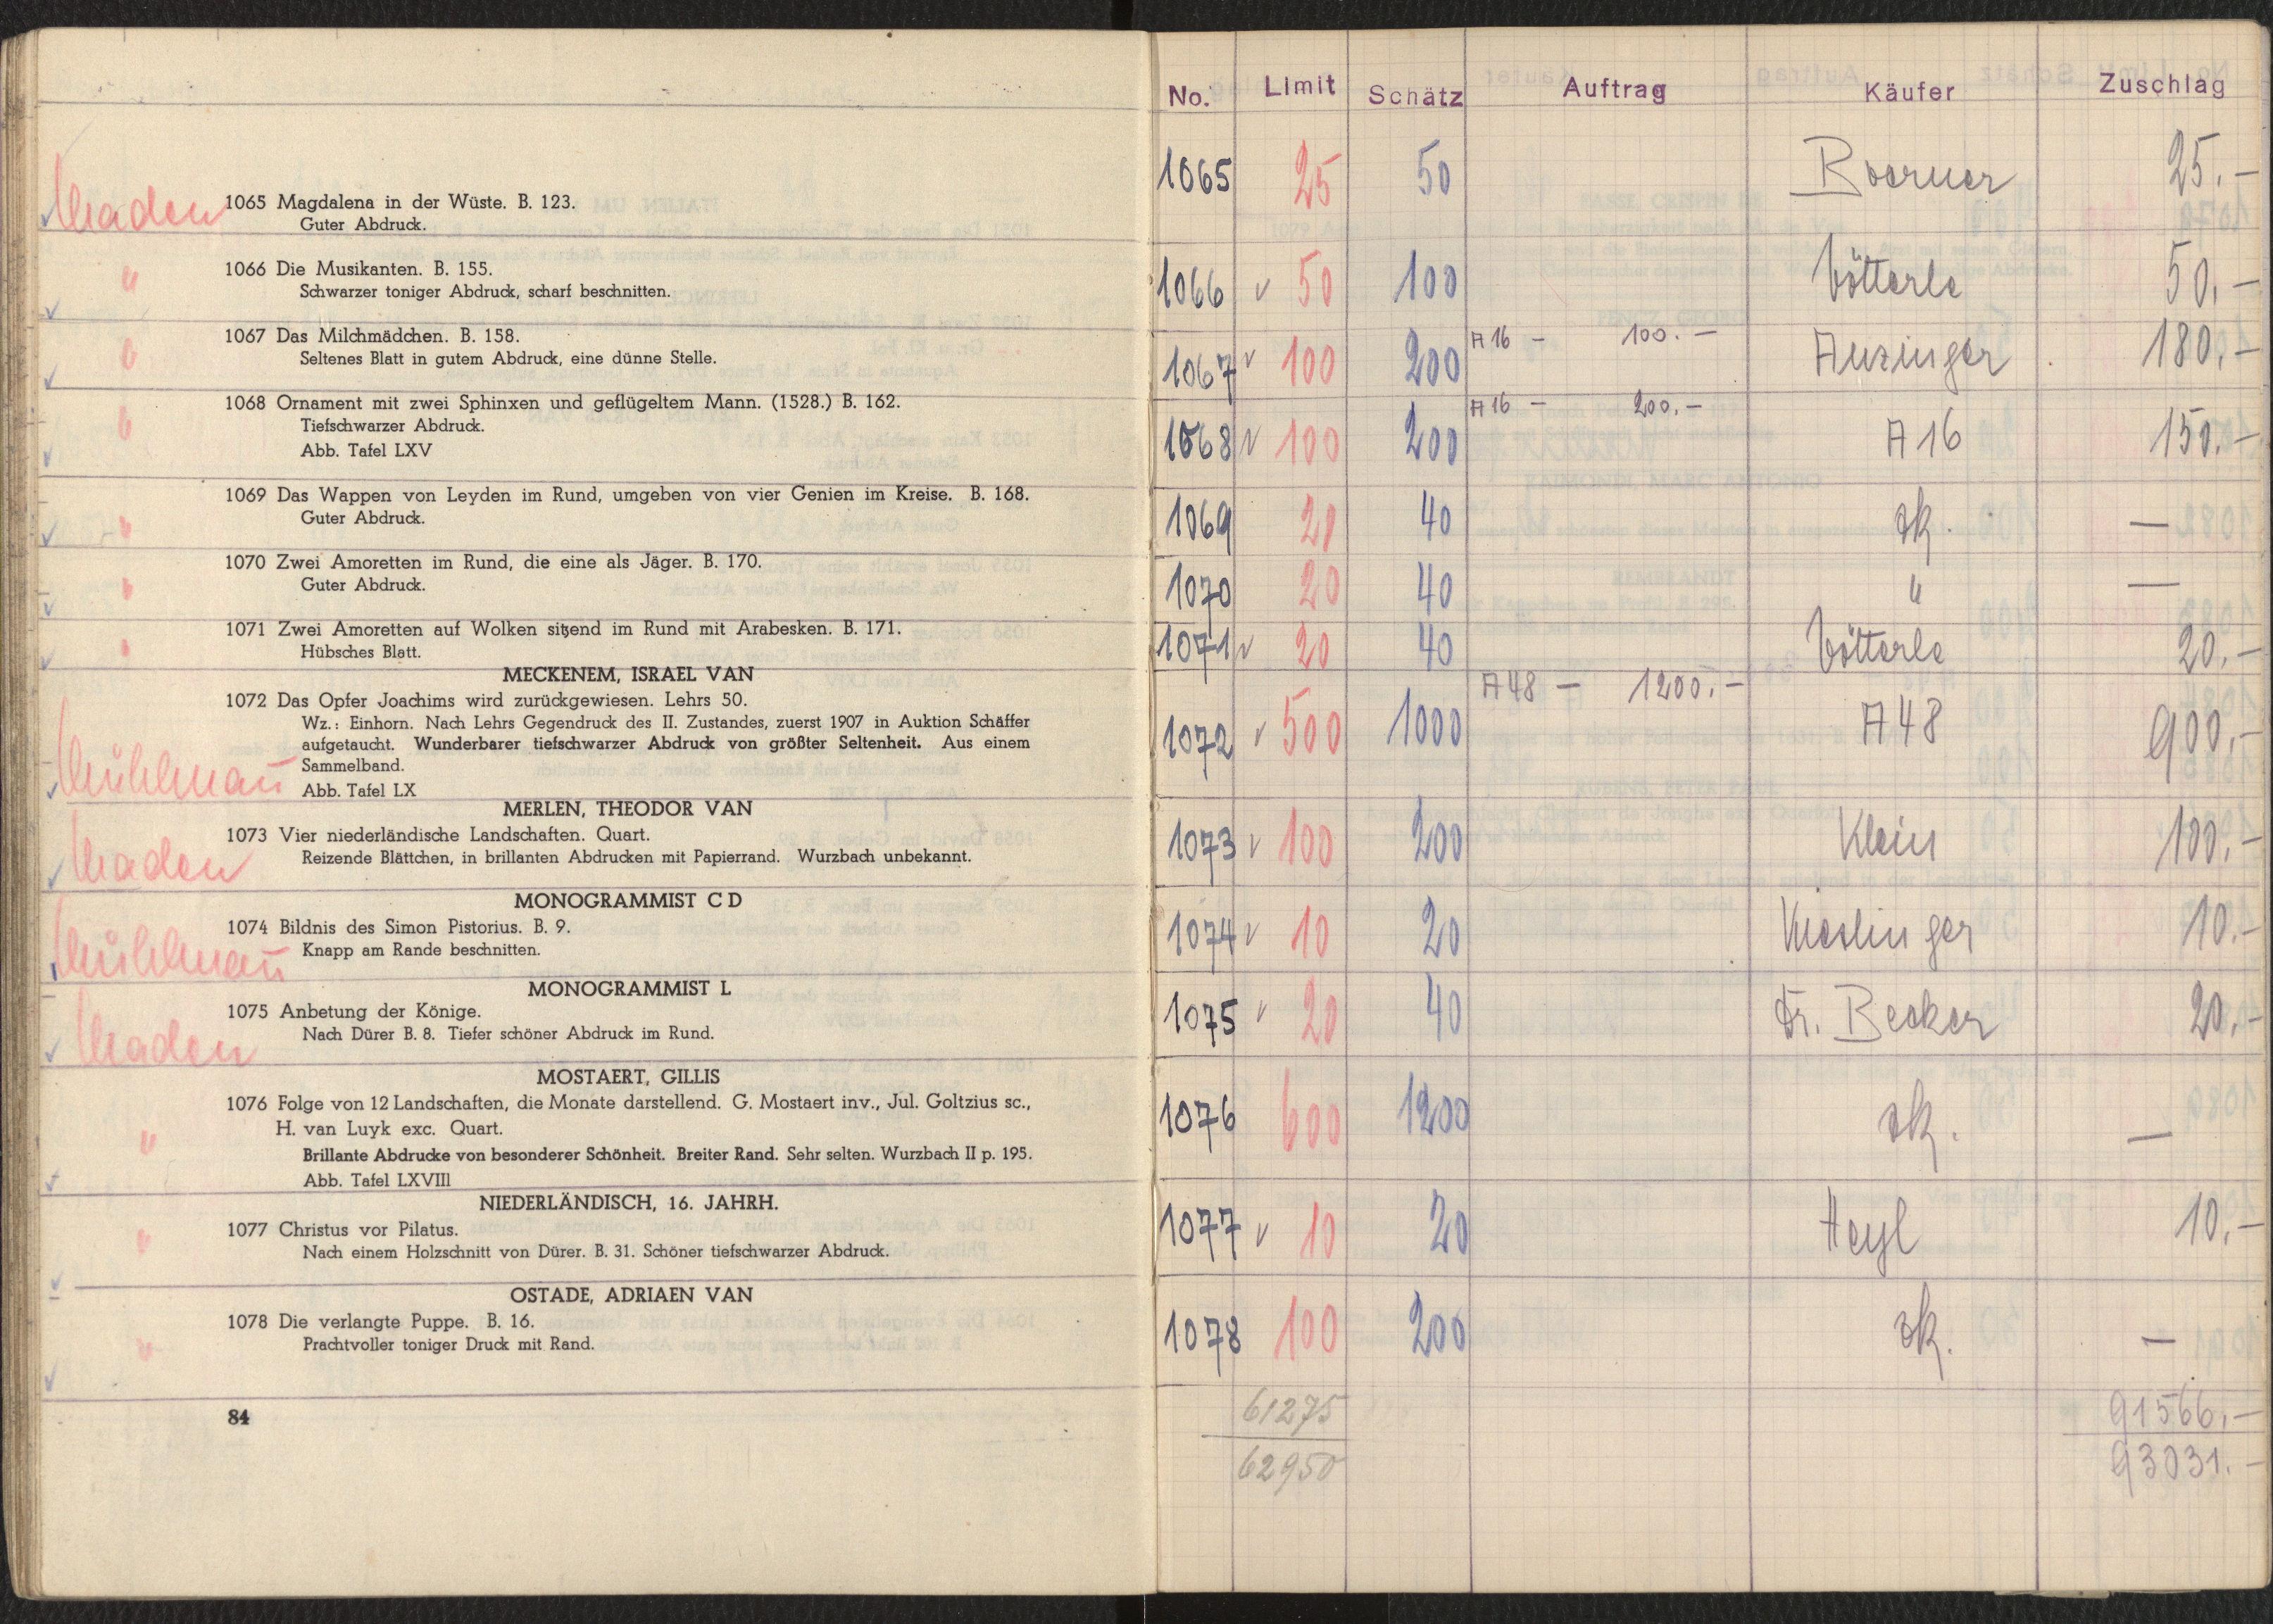 Maden 1065 Magdalena in der Wüste. B. 123.
Guter Abdruck.
" 1066 Die Musikanten. B. 155.
Schwarzer toniger Abdruck, scharf beschnitten.
" 1067 Das Milchmädchen. B. 158.
Seltenes Blatt in gutem Abdruck, eine dünne Stelle.
" 1068 Ornament mit zwei Sphinxen und geflügeltem Mann. (1528.) B. 162.
Tiefschwarzer Abdruck.
Abb. Tafel LXV
" 1069 Das Wappen von Leyden im Rund, umgeben von vier Genien im Kreise. B. 168.
Guter Abdruck.
" 1070 Zwei Amoretten im Rund, die eine als Jäger. B. 170.
Guter Abdruck.
" 1071 Zwei Amoretten auf Wolken sitzend im Rund mit Arabesken. B. 171.
Hübsches Blatt.
MECKENEM, ISRAEL VAN
1072 Das Opfer Joachims wird zurückgewiesen. Lehrs 50.
Wz.: Einhorn. Nach Lehrs Gegendruck des II. Zustandes, zuerst 1907 in Auktion Schäffer
aufgetaucht. Wunderbarer tiefschwarzer Abdruck von größter Seltenheit. Aus einem
Sammelband.
Abb. Tafel LX
MERLEN, THEODOR VAN
1073 Vier niederländische Landschaften. Quart.
Maden Reizende Blättchen, in brillanten Abdrucken mit Papierrand. Wurzbach unbekannt.
MONOGRAMMIST C D
1074 Bildnis des Simon Pistorius. B. 9.
Knapp am Rande beschnitten.
MONOGRAMMIST L
1075 Anbetung der Könige.
Maden Nach Dürer B. 8. Tiefer schöner Abdruck im Rund.
MOSTAERT, GILLIS
1076 Folge von 12 Landschaften, die Monate darstellend. G. Mostaert inv., Jul. Goltzius sc.,
" H. van Luyk exc. Quart.
Brillante Abdrucke von besonderer Schönheit. Breiter Rand. Sehr selten. Wurzbach II p. 195.
Abb. Tafel LXVIII
NIEDERLÄNDISCH, 16. JAHRH.
" 1077 Christus vor Pilatus.
Nach einem Holzschnitt von Dürer. B. 31. Schöner tiefschwarzer Abdruck.
OSTADE, ADRIAEN VAN
" 1078 Die verlangte Puppe. B. 16.
Prachtvoller toniger Druck mit Rand.
84
No. Limit Schätz Auftrag Käufer Zuschlag
1065 25 50 Boerner 25.–
1066 50 100 50.–
1067 100 200 A 16 – 100.– Anzinger 180.–
1068 100 200 A 16 – 200.– A 16 150.–
1069 20 40 zk. –
1070 20 40 " –
1071 20 40 20.–
1072 500 1000 A 48 – 1200.– A 48 900.–
1073 100 200 Klein 100.–
1074 10 20 Kieslinger 10.–
1075 20 40 Dr. Becker 20.–
1076 600 1200 zk. –
1077 10 20 Heyl 10.–
1078 100 200 zk. –
61275 91566.–
62950 93031.–